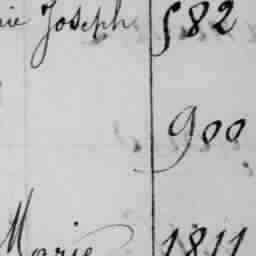 Joseph 582
900
Marie 1811